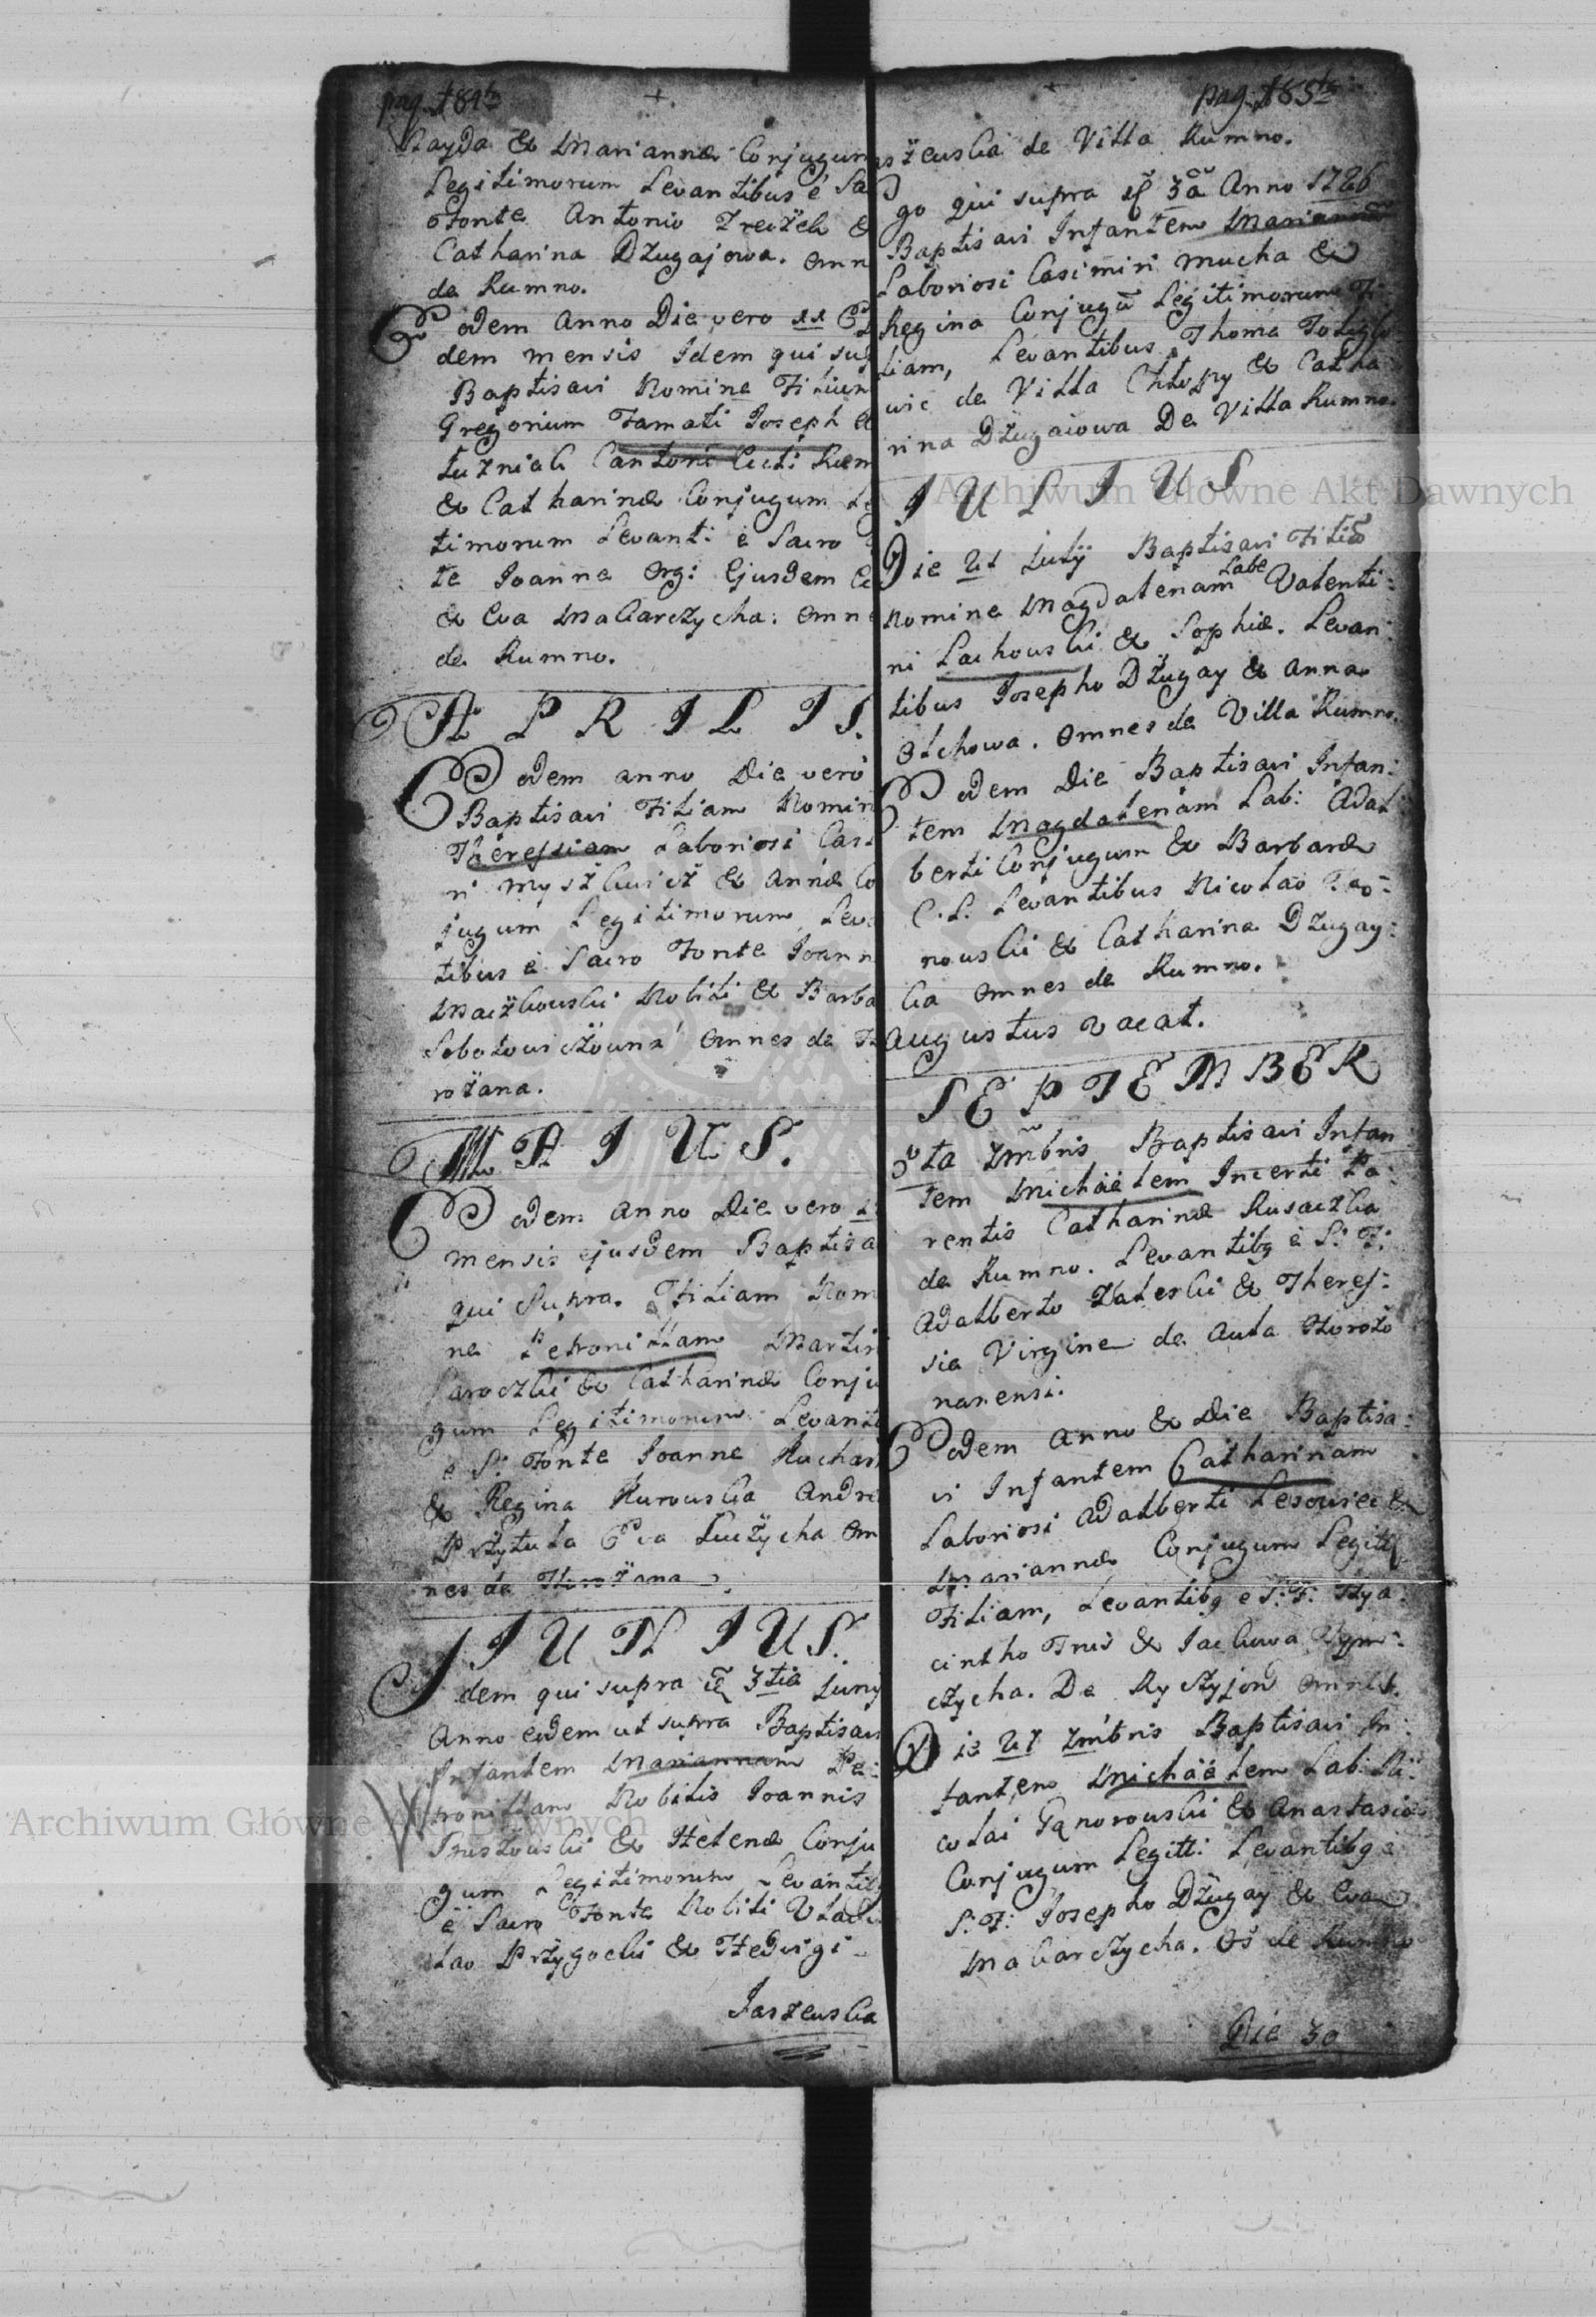 pag. 184ta
Rayda & Mariannæ Conjugum
Legitimorum Levantibus é Sa
Fonte Antonio &
Catharina Dzugajowa. Omn
de Rumno.
Eodem Anno Die vero 11 E
dem mensis Idem qui sup
Baptisavi Nomine Filium
Gregorium Famati Joseph &
Cantoni Ecti Rum
& Catharinæ Conjugum Le
timorum Levant: è Sacro
te Joanne Org: Ejusdem Ec
& Eva Makarczycha: Omne
de Rumno.
APRILIS.
Eodem anno Die vero
Baptisavi Filiam Nomin
Theressiam Laboriosi Casi
ri & Annæ Co
jugum Legitimorum Leva
tibus è Sacro Fonte Joann
Maczkowski Nobili & Barba
Sobolowiczowna Omnes de H
rożana.
MAIUS.
Eodem Anno Die vero
mensis ejusdem Baptisa
qui Supra. Filiam Nom
ne Petronillam Martin
& Catharinæ Conju
gum Legitimorum Levant
è S: Fonte Joanne Kuchar
& Regina Kurowska Andre
Przytuła Eva Omn
nes de Horożana.
JUNIUS.
Idem qui supra 3tia Juny
Anno eodem ut supra Baptisavi
Infantem Mariannam Pe:
tronillam Nobilis Joannis
& Helenæ Conju
gum Legitimorum Levantib
è Sacro Fonte Nobili Vladis
lao Przygocki & Hedvigi
Jaszewska
pag. 185ta
aszewska de Villa Rumno.
Ego qui supra 3a Anno 1786
Baptisavi Infantem Mariannam
Laboriosi Casimiri Mucha &
Regina Conjugũ Legitimorum Fi
liam, Levantibus Thoma
wic de Villa Chłopy & Catha
rina Dzugaiowa De Villa Rumno.
JULIUS
Die 21 Julij Baptisavi Filiã
Nomine Magdalenam Labo Valenti:
ni Lachowski & Sophiæ. Levan
tibus Josepho Dżugay & Anna
Olchowa. Omnes de Villa Rumno.
Eodem Die Baptisavi Infan:
tem Magdalenam Lab: Adal
berti Conjugum & Barbaræ
C.L. Levantibus Nicolao
nowski & Catharina Dzugay:
ka Omnes de Rumno.
Augustus vacat.
SEPTEMBER
7mbris Baptisavi Infan
tem Michäelem Incerti Pa:
rentis Catharinæ Rusaczka
de Rumno. Levantibg è S: F:
Adalberto Zaleski & Theres:
sia Virgine de Aula Horożo
nanensi.
Eodem Anno & Die Baptisa:
vi Infantem Catharinam
Laboriosi Adalberti Lesowiec &
Mariannæ Conjugum Legitt
Filiam, Levantibg e S: F: Hya:
cintho & Jackowa
czycha. De Omnes.
Die 27 7mbris Baptisavi In:
fantem Michäelem Lab: Ni:
colai Ganorowski & Anastasiæ
Conjugum Legitt: Levantibg è
S: F: Josepho Dżugay & Eva
Makarczycha. Os de Rumno
Die 30